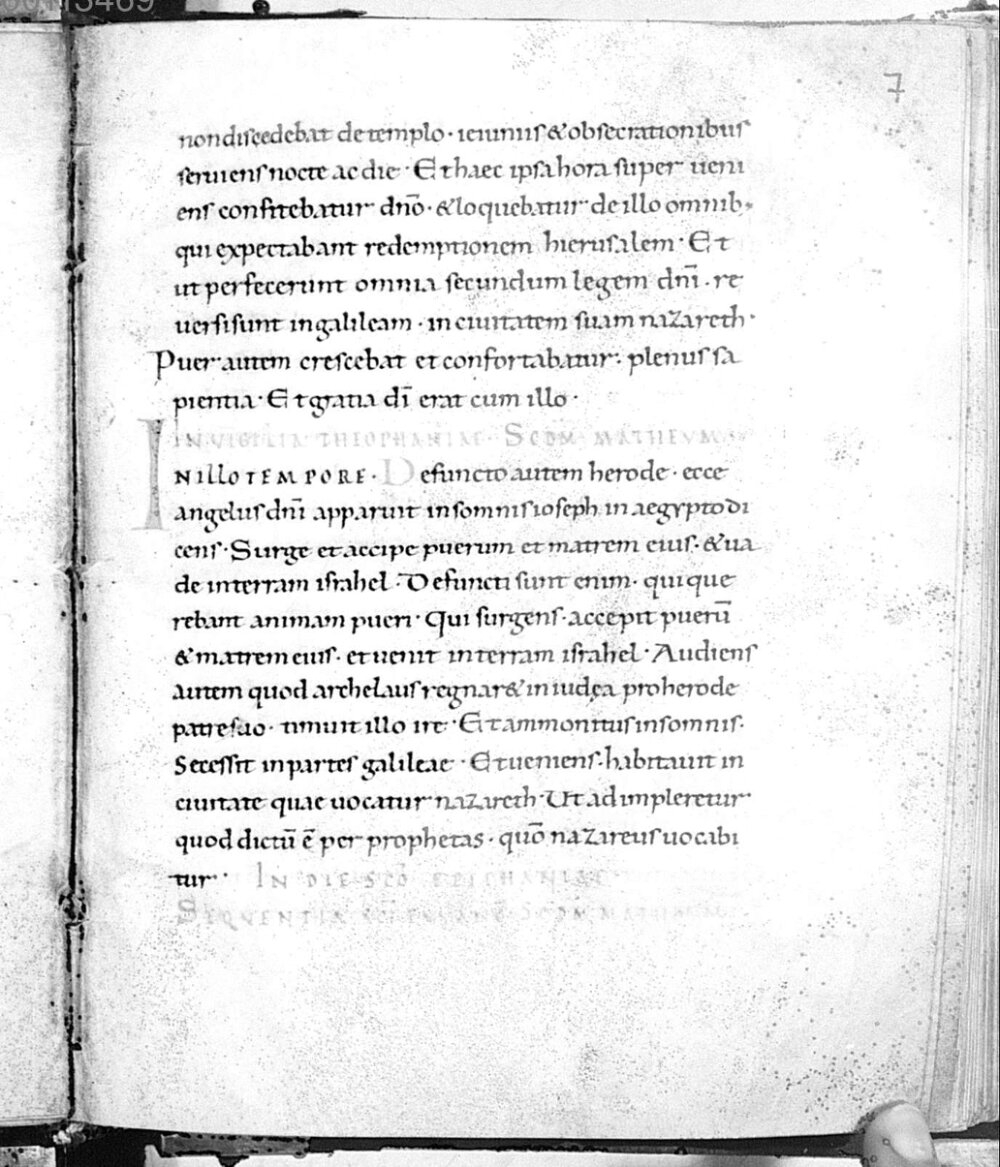 7
non discedebat de templo · ieiuniis & obsecrationibus
seruiens nocte ac die · Et haec ipsa hora super ueni
ens confitebatur dnō · & loquebatur de illo omnib;
qui expectabant redemptionem hierusalem · Et
ut perfecerunt omnia secundum legem dnī · re
uersi sunt in galileam · in ciuitatem suam nazareth ·
Puer autem crescebat et confortabatur · plenus sa
pientia · Et gratia dī erat cum illo ·
IN VIGILIA THEOPHANIAE · SCDM MATHEVM
IN ILLO TEMPORE · Defuncto autem herode · ecce
angelus dnī apparuit in somnis ioseph in aegypto di
cens · Surge et accipe puerum et matrem eius · & ua
de in terram israhel · Defuncti sunt enim · qui que
rebant animam pueri · Qui surgens · accepit puerū
& matrem eius · et uenit in terram israhel · Audiens
autem quod archelaus regnar& in iudęa pro herode
patre suo · timuit illo ire · Et ammonitus in somnis ·
Secessit in partes galileae · Et ueniens · habitauit in
ciuitate quae uocatur nazareth · Ut adimpleretur
quod dictū ē per prophetas · quō nazareus uocabi
tur · IN DIE SCŌ EPIPHANIAE
SEQUENTIA SCDM